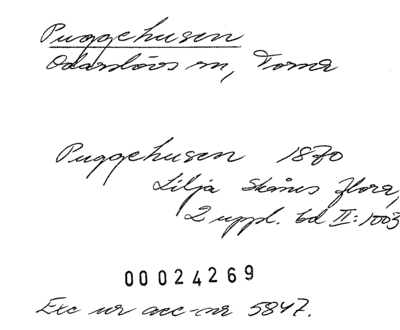 Puggehusen
Odarslövs sn, Torna
Puggehusen 1870
Lilja Skånes flora,
2 uppl. bd II:1003
00024269
Exc ur acc-nr 5847.